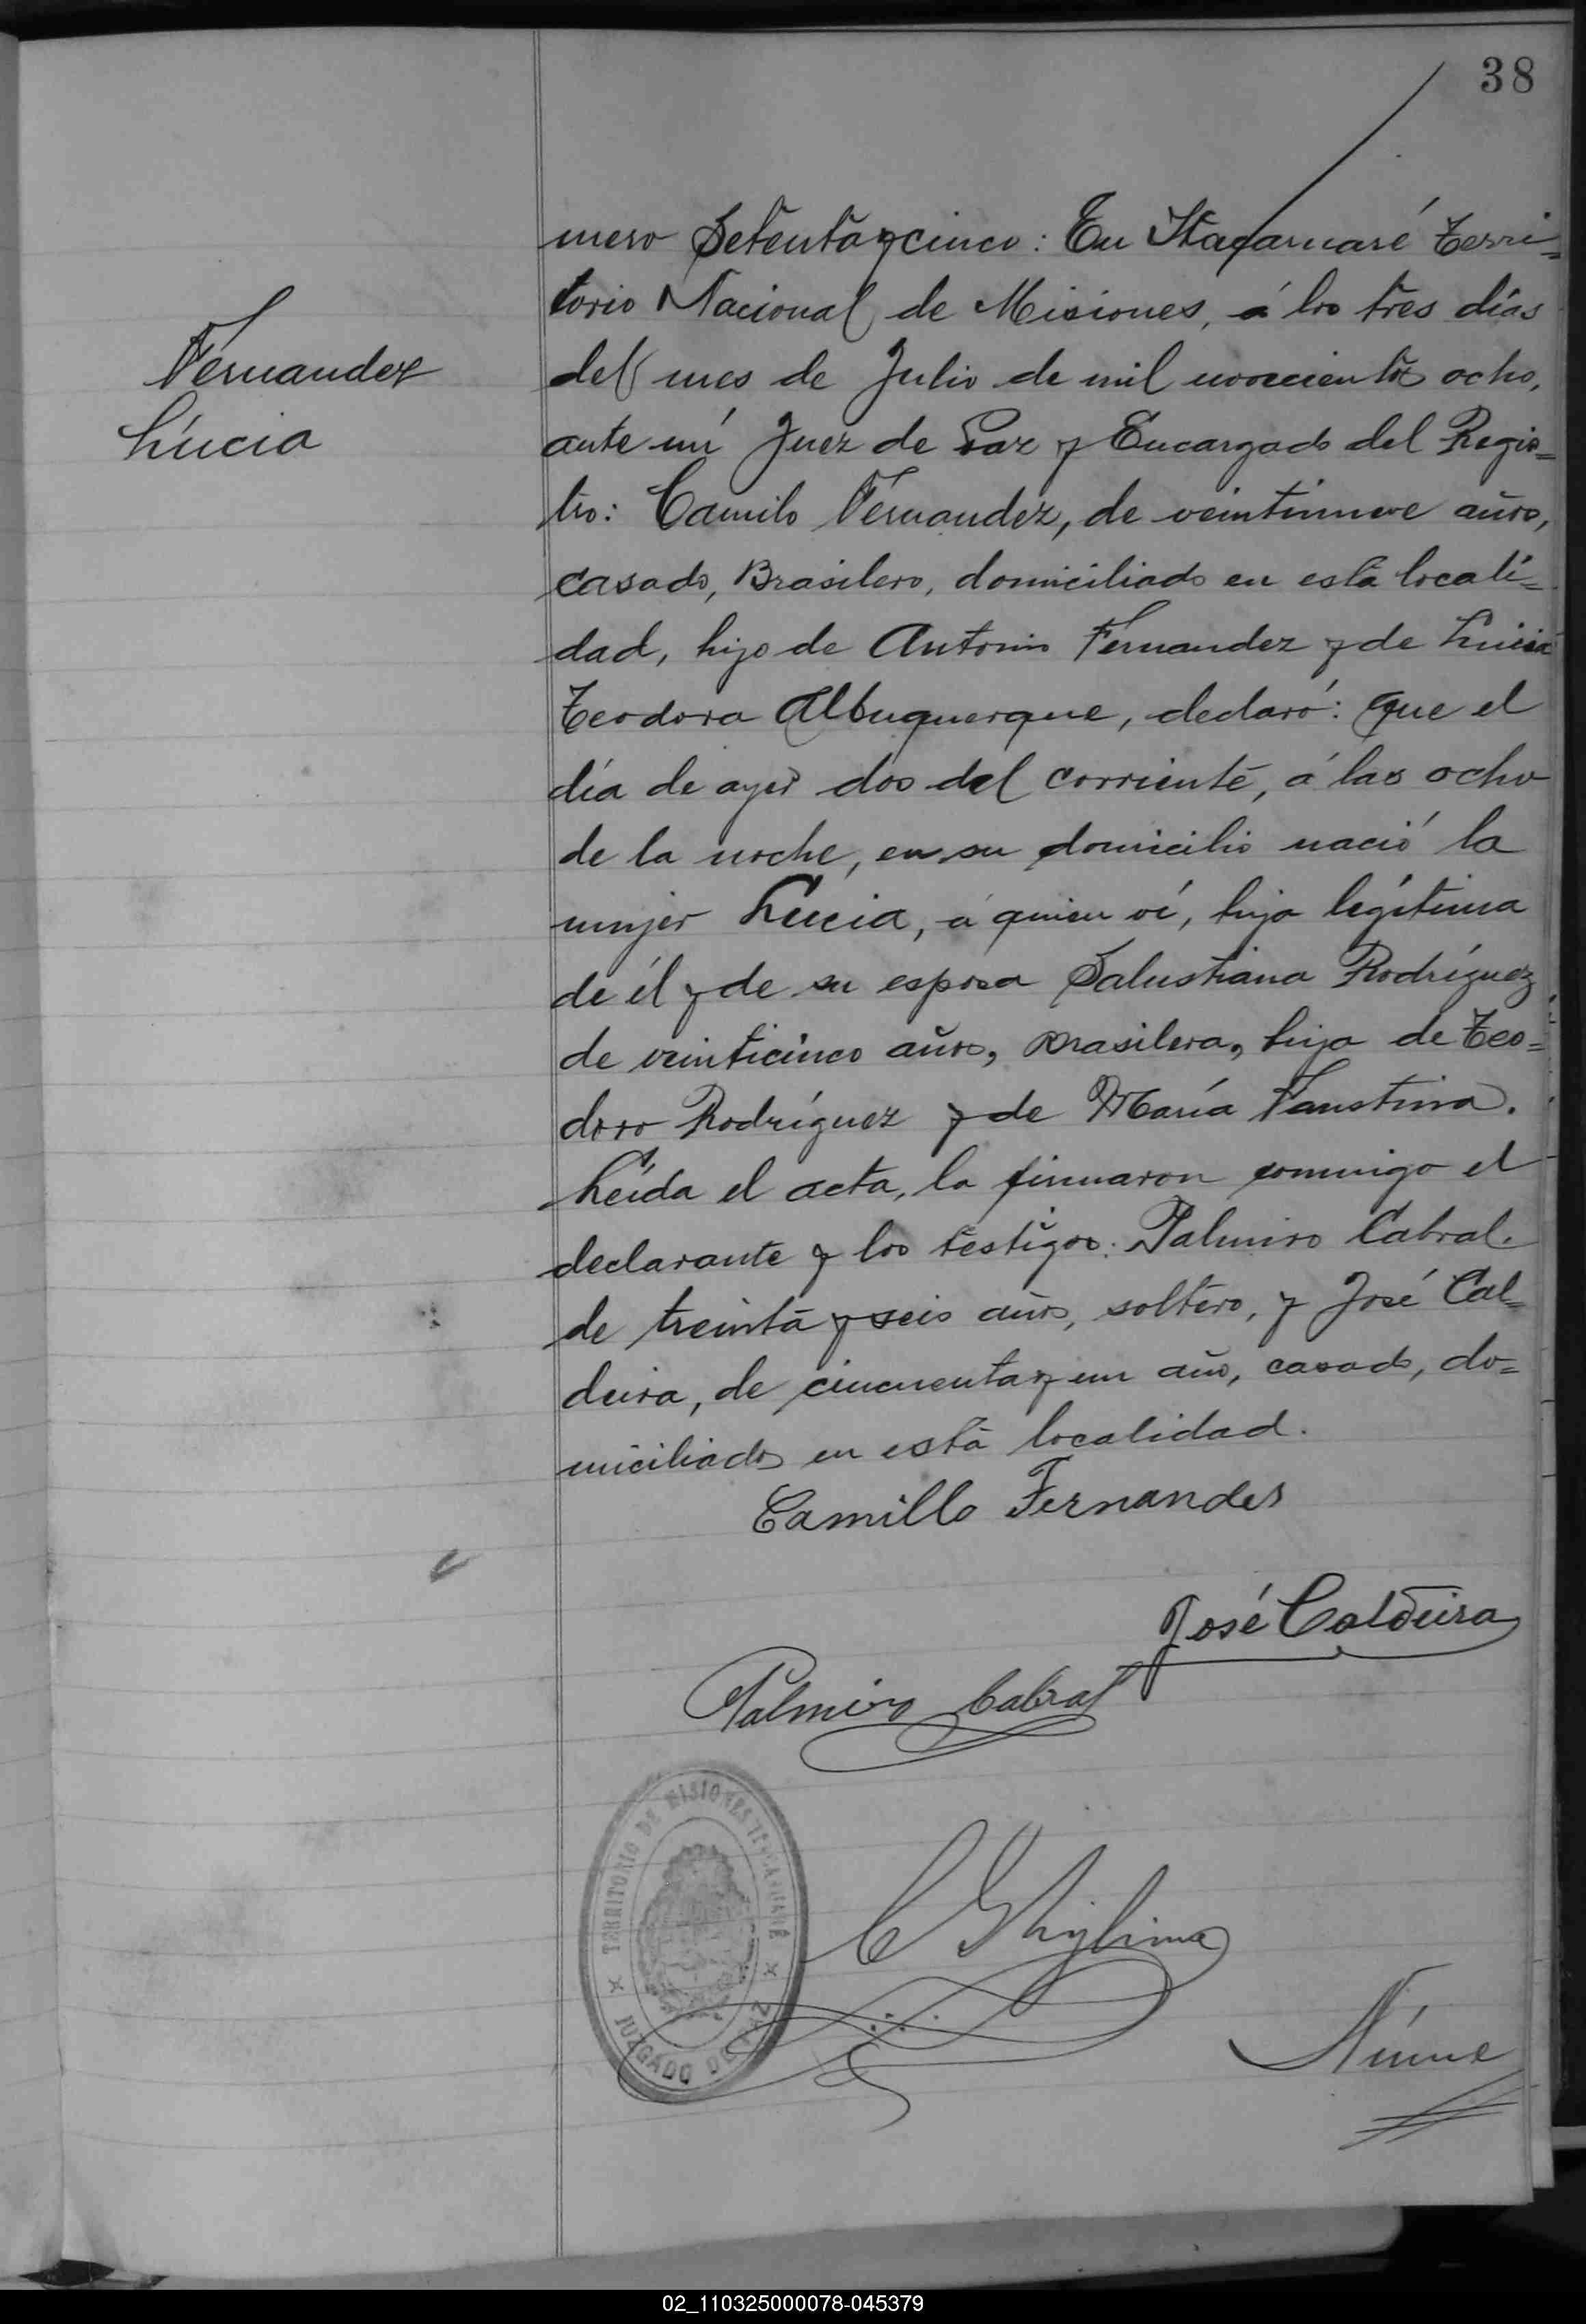 38
Fernandez
Lucia
mero Setenta y cinco: En Itacaruaré Terri=
torio Nacional de Misiones, á los tres días
del mes de Julio de mil novecientos ocho,
ante mí Juez de Paz y Encargado del Regis=
tro: Camilo Fernandez, de veintinueve años,
casado, Brasilero, domiciliado en esta locali=
dad, hijo de Antonio Fernandez y de Lucia
Teodora Albuquerque, declaró: Que el
día de ayer dos del corriente, á las ocho
de la noche, en su domicilio nació la
mujer Lucia, á quien ví, hija legítima
de él y de su esposa Salustiana Rodríguez
de veinticinco años, Brasilera, hija de Teo=
doro Rodríguez y de María Faustina.
Leída el acta, la firmaron conmigo el
declarante y los testigos: Palmiro Cabral.
de treinta y seis años, soltero, y José Cal=
deira, de cincuenta y un año, casado, do=
miciliados en esta localidad.
Camillo Fernandes
José Caldeira
Palmiro Cabral
TERRITORIO DE MISIONES
JUZGADO DE PAZ
02_110325000078-045379